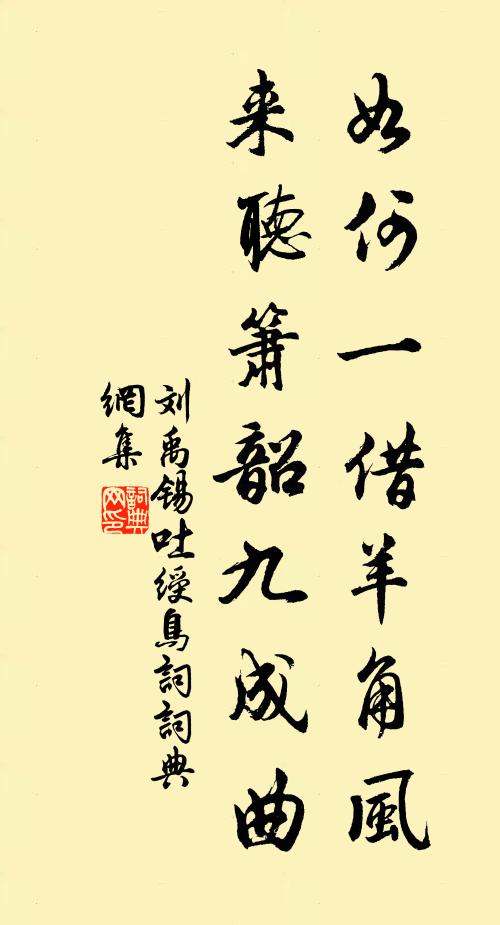 如何一借羊角風
来聴簫韶九成曲
刘禹锡吐綬鳥詞詞典
網集
詞典
网印